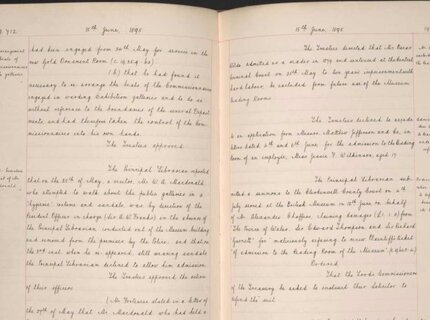 15th June, 1895
had been engaged from 20th May for service in the
new Gold Ornament Room
(b) that he had found it
necessary to re arrange the beats of the Commissionaires
engaged in warding Exhibition galleries and to do so
without reference to the boundaries of the several Depart-
ments and had therefore taken the control of the Com-
missionaires into his own hands.
The Trustees approved.
The Principal Librarian reported
that on the 25th of May a visitor, Mr W. A. Macdonald
who attempted to walk about the public galleries in a
"hygienic" costume and sandals was by direction of the
Resident Officer in charge (Sir A. W. Franks) in the absence of
the Principal Librarian conducted out of the Museum building
and removed from the premises by the Police, and that on
the 3rd inst. when he re appeared, still wearing sandals
the Principal Librarian declined to allow him admission.
The Trustees approved the action
of their officers
(Mr Fortescue stated in a letter of
the 29th of May that Mr Macdonald who had held a
15th June, 1895
The Trustees directed that Mr Oscar
Wilde admitted as a reader in 1879 and sentenced at the Central
Criminal Court on 25th May to two years imprisonment with
hard labour, be excluded from future use of the Museum
Reading Room
The Trustees declined to accede
to an application from Messrs. Mathew Jefferson and Co., in
letters dated 5th & 6th June for the admission to the Reading
Room of an employee, Miss Jessie F. Wilkinson, aged 19
The Principal Librarian sub-
mitted a summons to the Clerkenwell County Court on 4th
July served at the British Museum on 12th June on behalf
of Mr Alexander Chaffers claiming damages
from the Prince of Wales, Sir Edward Thompson and Sir Richard
Garnett for "maliciously refusing to renew Plaintiff's ticket
of admission to the Reading Room of the Museum"
Ordered
That the Lords Commissioners
of the Treasury be asked to instruct their Solicitor to
defend the suit